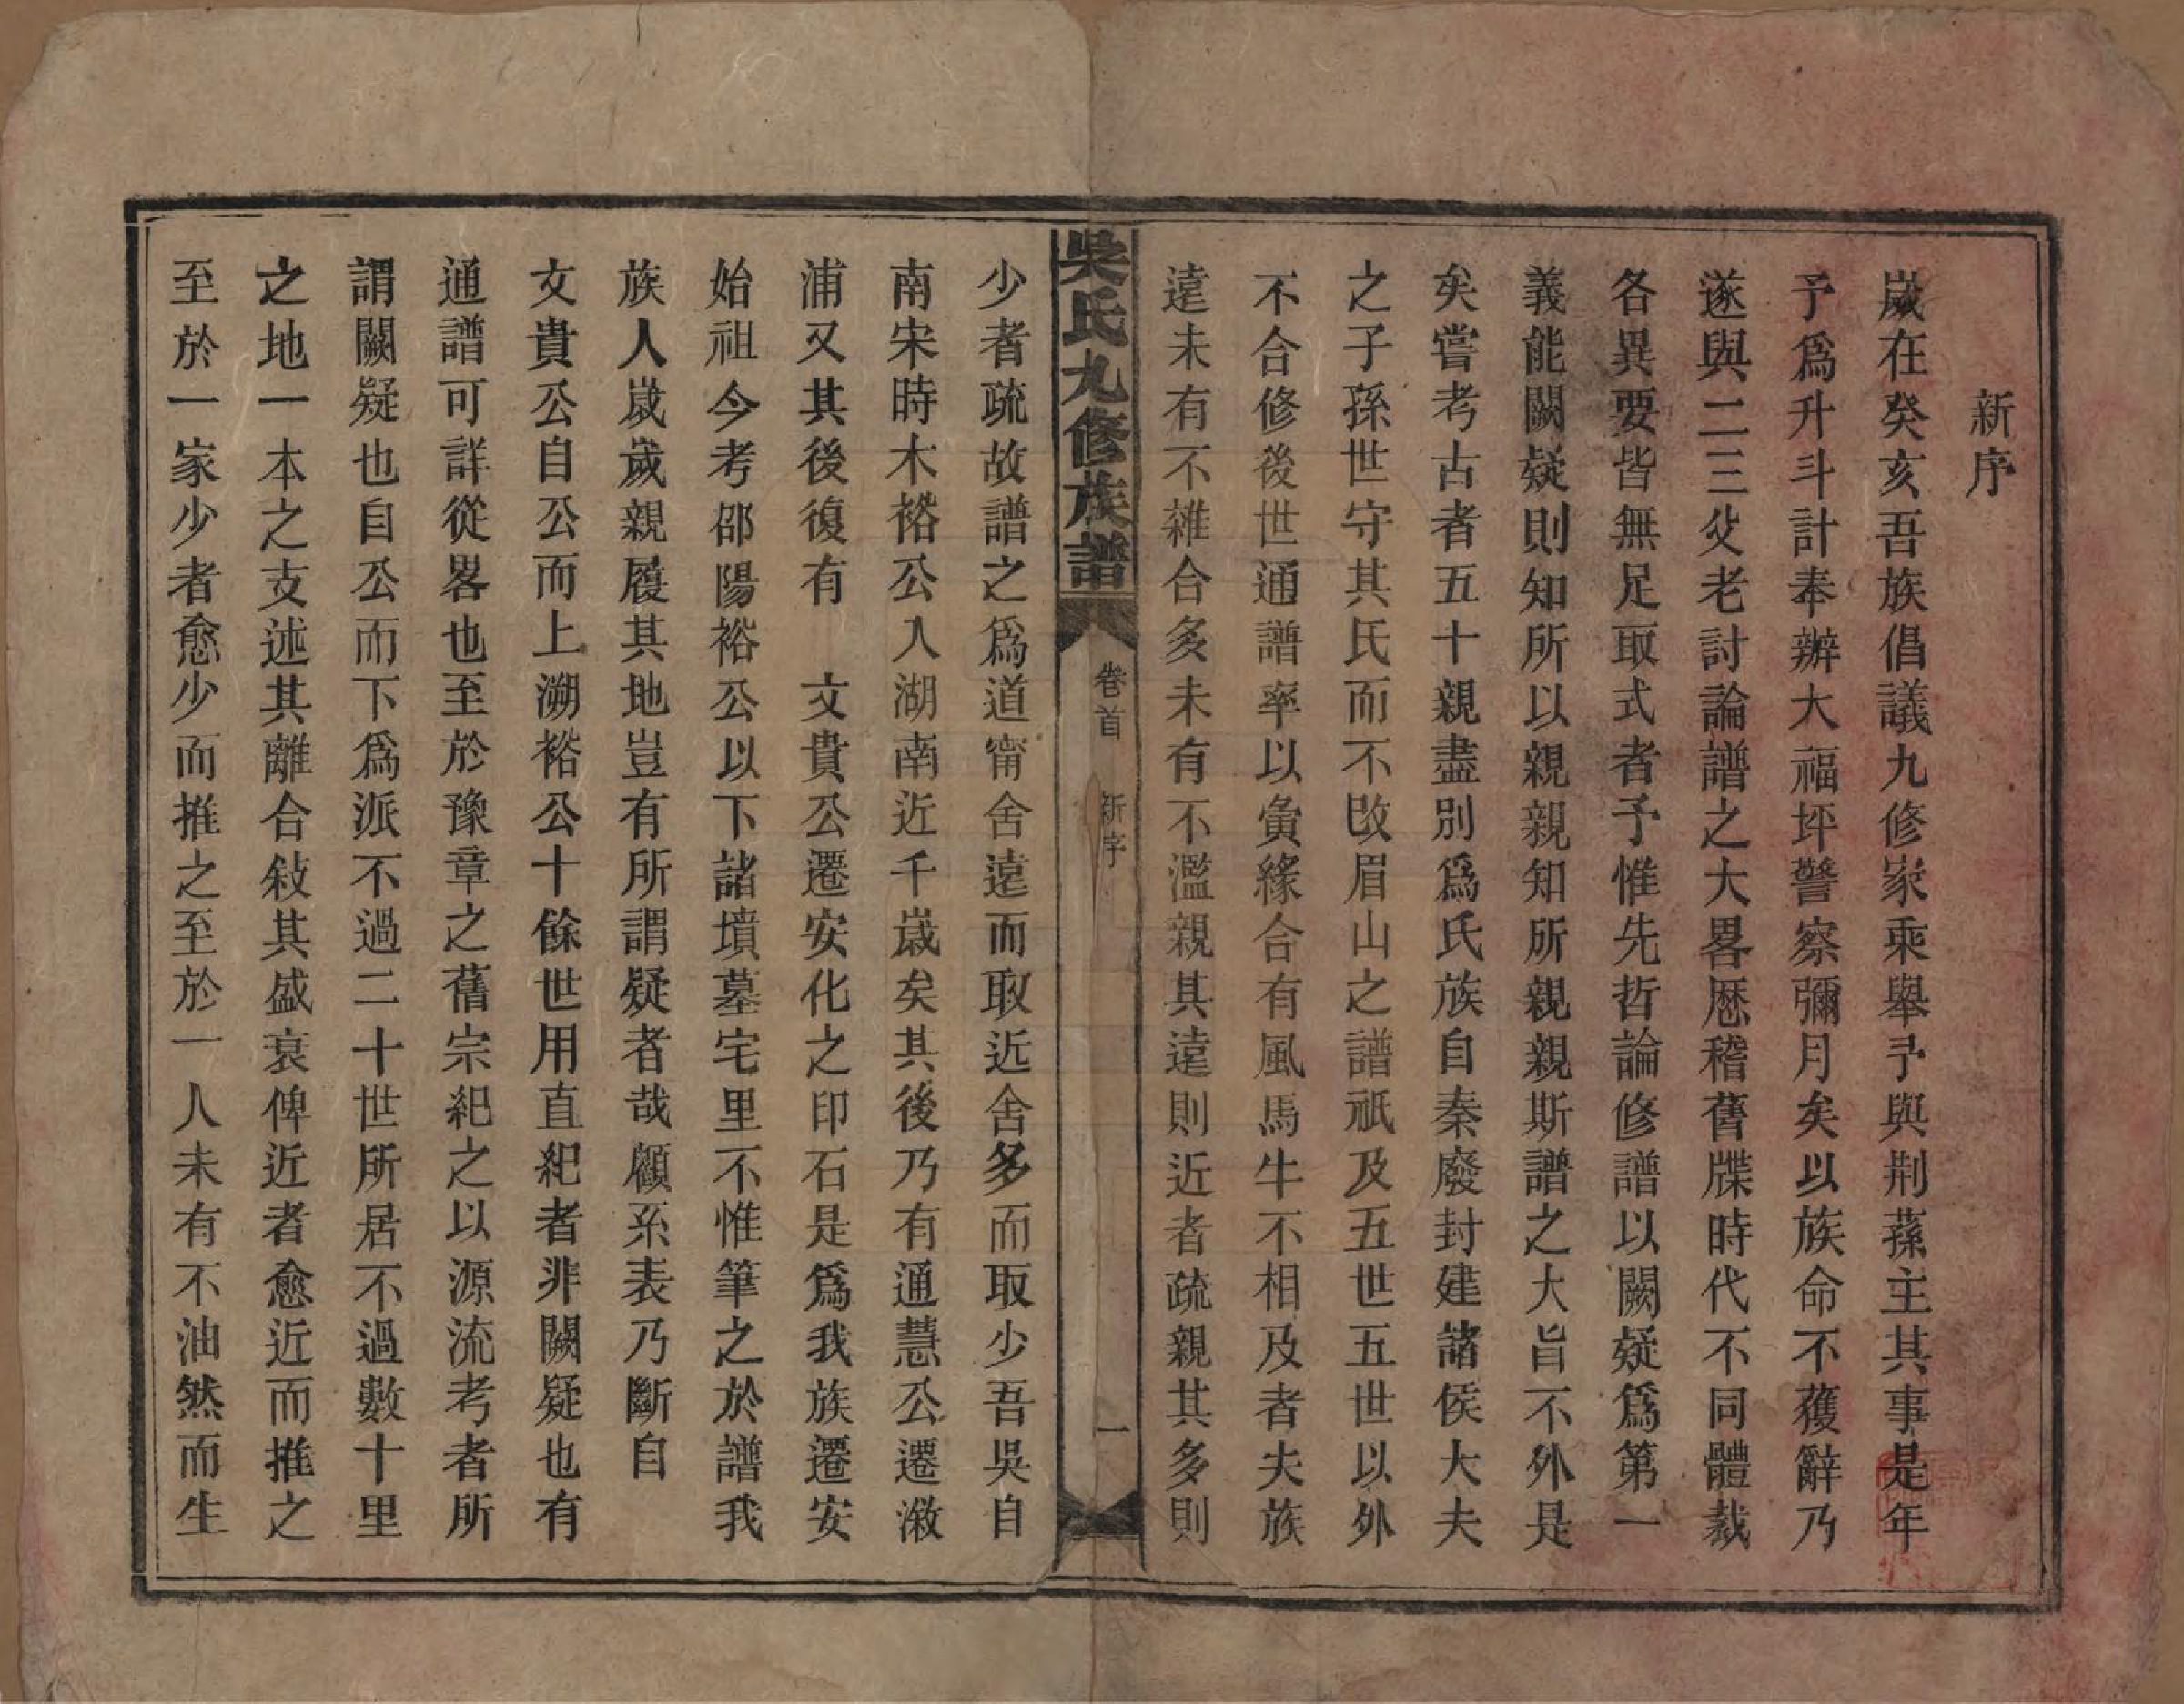 新序
歲在癸亥吾族倡議九修家乘舉予與荆蓀主其事是年
予爲升斗計奉辦大福坪警察彌月矣以族命不獲辭乃
遂與二三父老討論譜之大畧歷稽舊牒時代不同體裁
各異要皆無足取式者予惟先哲論修譜以闕疑爲第一
義能闕疑則知所以親親知所親親斯譜之大旨不外是
矣嘗考古者五十親盡別爲氏族自秦廢封建諸侯大夫
之子孫世守其氏而不改眉山之譜祇及五世五世以外
不合修後世通譜率以夤緣合有風馬牛不相及者夫族
遠未有不雜合多未有不濫親其遠則近者疏親其多則
吳氏九修族譜
卷首
新序
一
少者疏故譜之爲道甯舍遠而取近舍多而取少吾吳自
南宋時木裕公人湖南近千歲矣其後乃有通慧公遷漵
浦又其後復有 文貴公遷安化之印石是爲我族遷安
始祖今考邵陽裕公以下諸墳墓宅里不惟筆之於譜我
族人歲歲親履其地豈有所謂疑者哉顧系表乃斷自
文貴公自公而上溯裕公十餘世用直紀者非闕疑也有
通譜可詳從畧也至於豫章之舊宗紀之以源流考者所
謂闕疑也自公而下爲派不過二十世所居不過數十里
之地一本之支述其離合敍其盛衰俾近者愈近而推之
至於一家少者愈少而推之至於一人未有不油然而生